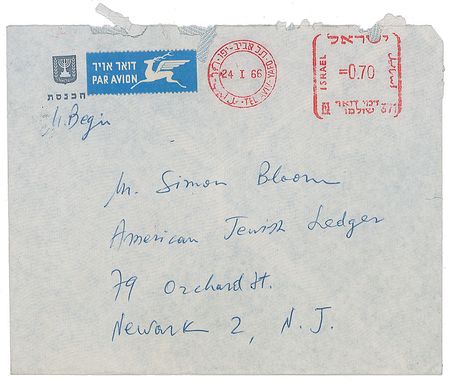 הכנסת
M. Begin
דואר אויר
PAR AVION
24 I 66
ישראל
ISRAEL
=0.70
اسرائيل
דמי דואר
שולמו
Mr. Simon Bloom
American Jewish Ledger
79 Orchard St.
Newark 2, N. J.